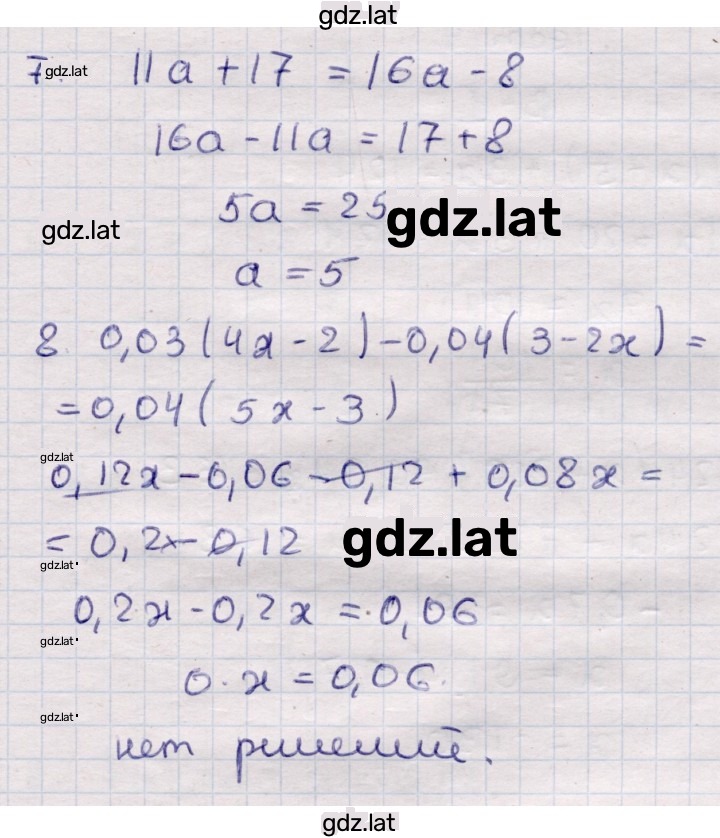 gdz.lat
7. gdz.lat 11a + 17 = 16a - 8
16a - 11a = 17 + 8
5a = 25 gdz.lat
gdz.lat
a = 5
8. 0,03(4x - 2) - 0,04(3 - 2x) =
= 0,04(5x - 3)
gdz.lat
0,12x - 0,06 - 0,12 + 0,08x =
= 0,2x - 0,12 gdz.lat
gdz.lat
0,2x - 0,2x = 0,06
gdz.lat
0 · x = 0,06.
gdz.lat
нет решений.
gdz.lat